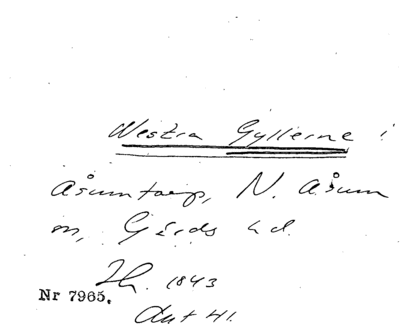 Westra Gyllerne i
Åsumtorp, N. Åsum
m, Gärds hd.
Th. 1843
Nr 7965.
Aut 41.